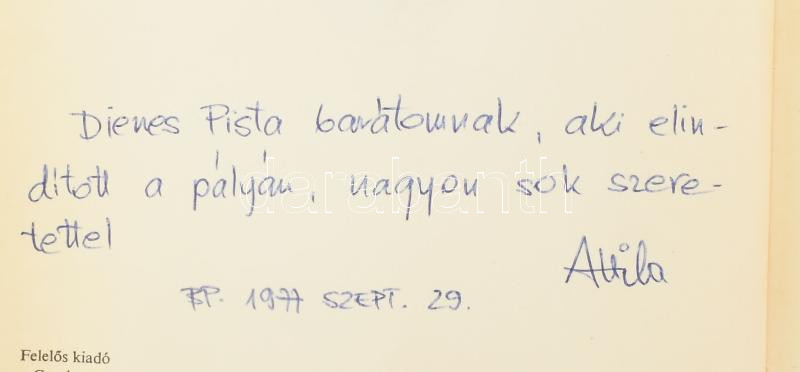 Dienes Pista barátomnak, aki elin-
dított a pályán, nagyon sok szere-
tettel
Attila
BP. 1977 SZEPT. 29.
darabanth
Felelős kiadó